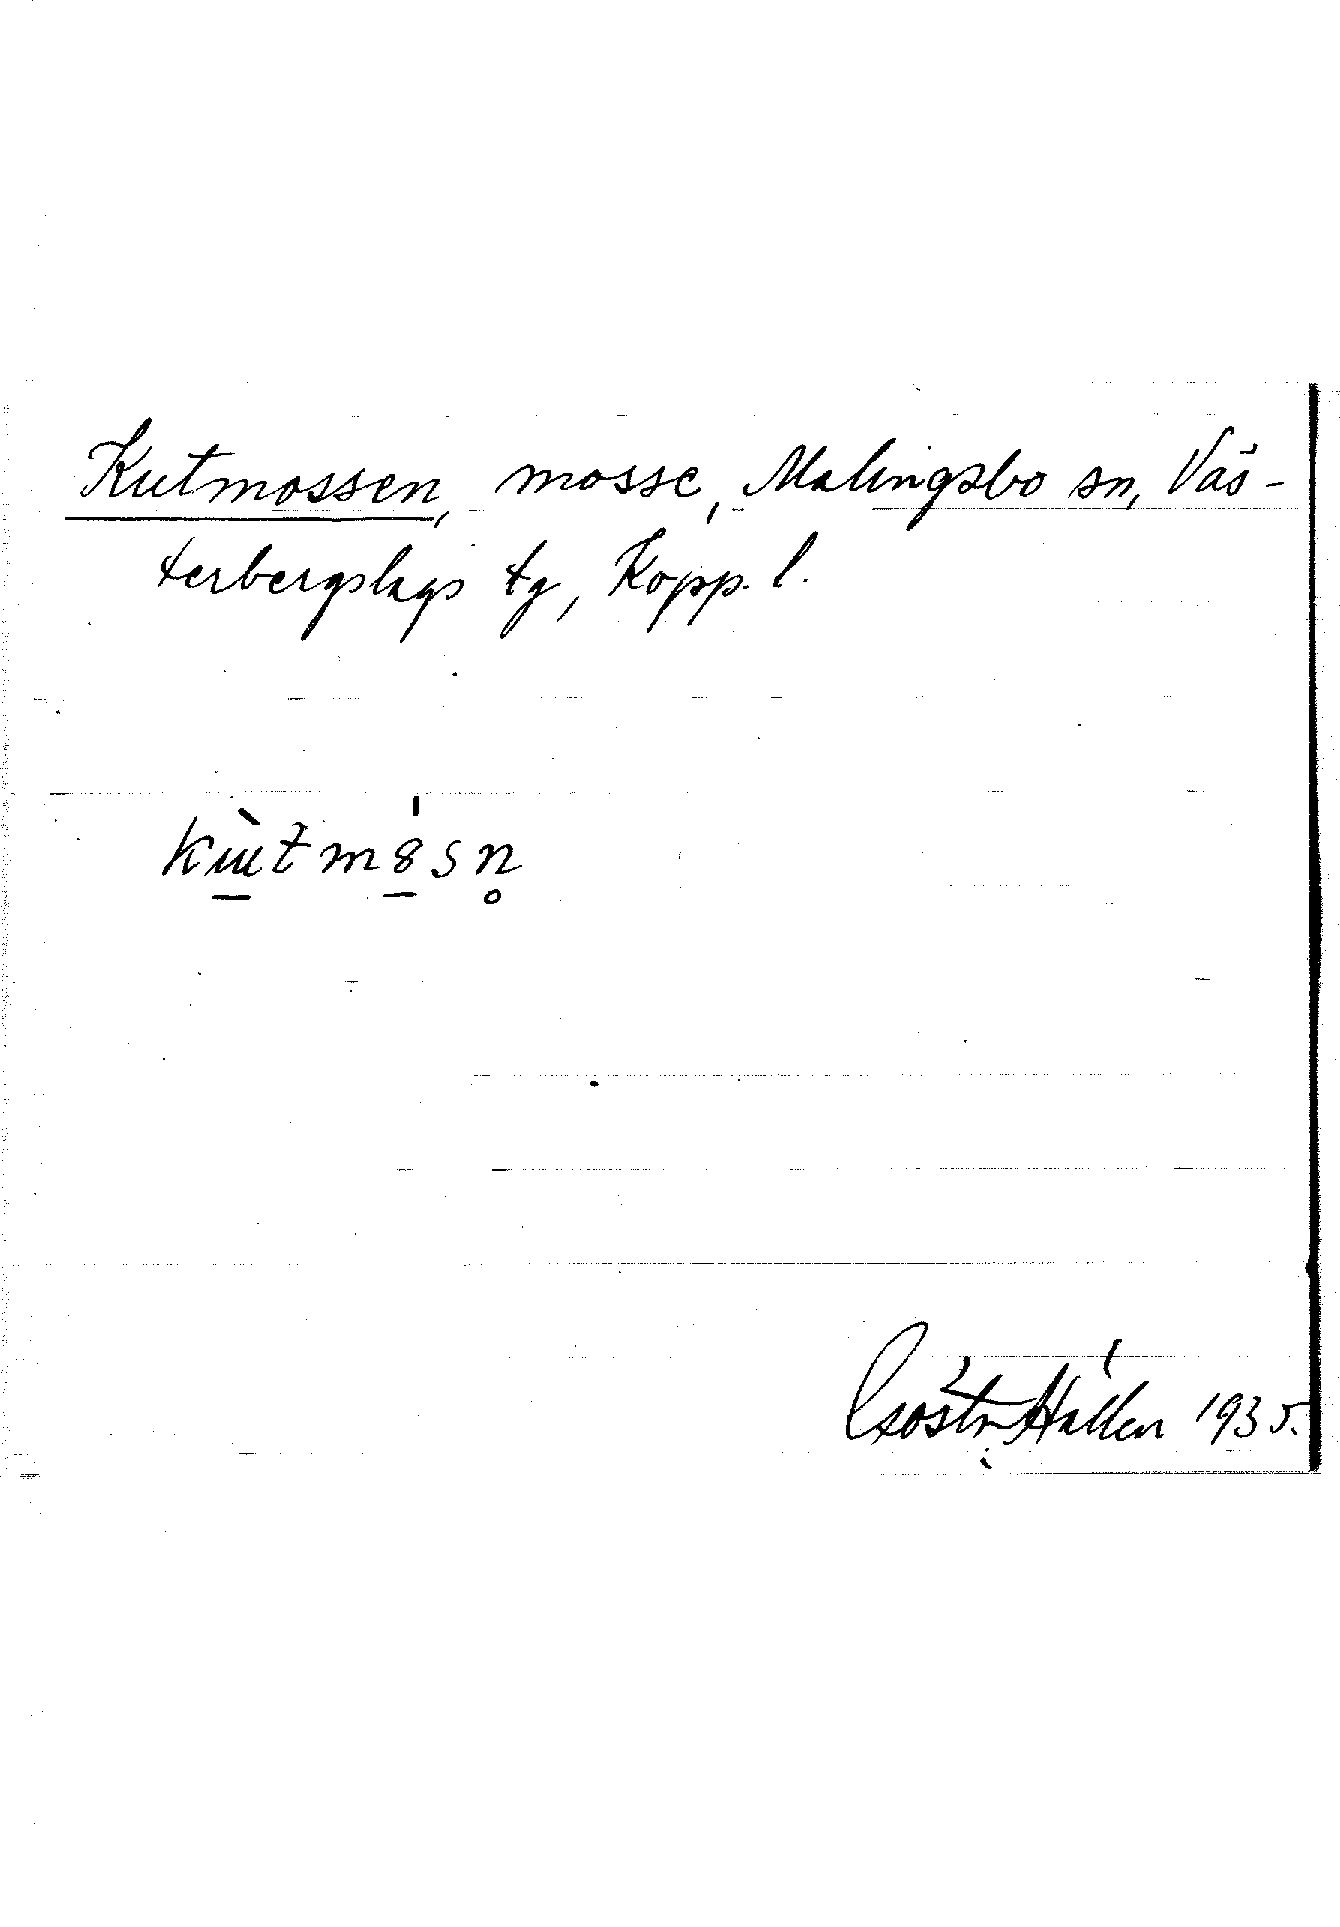 Kutmossen, mosse, Malingsbo sn, Väs-
terbergslags tg, Kopp. l.
Gösta Hallen 1935.